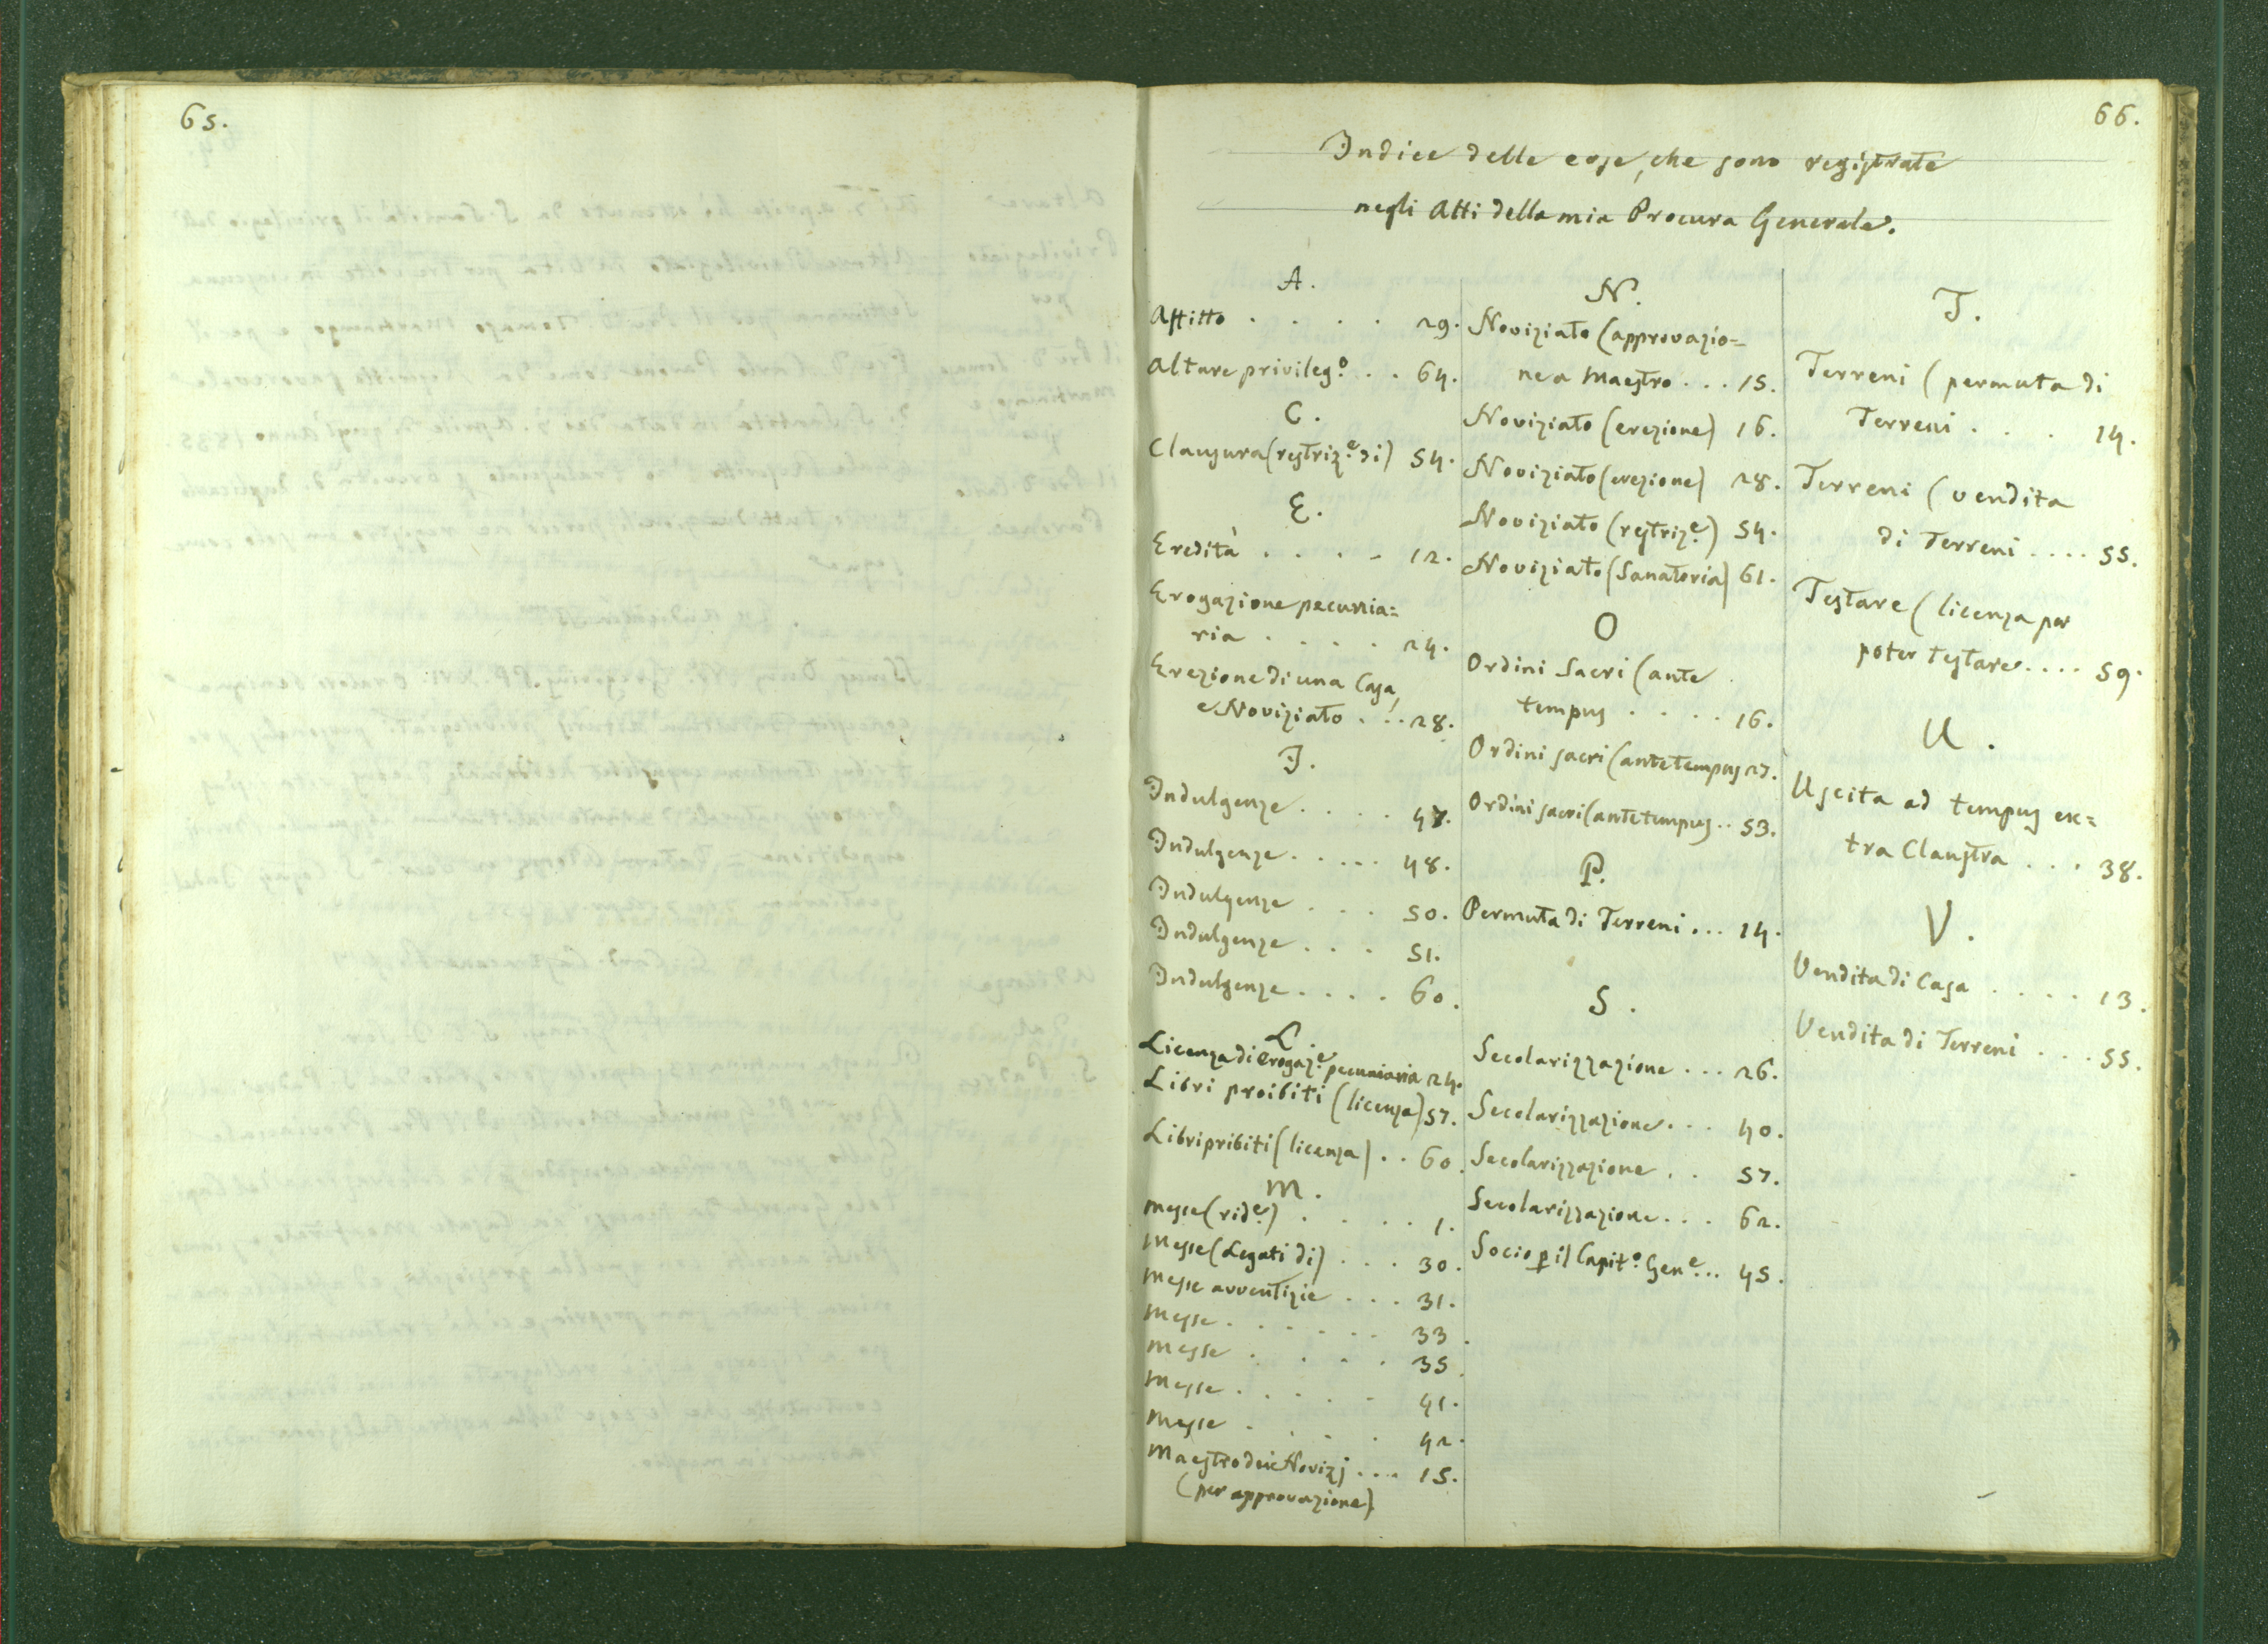 65.
66.
Indice delle cose, che sono registrate
negli Atti della mia Procura Generale.
A.
Affitto . . . . 29.
Altare privileg.º . . 64.
C.
Clausura (restriz.e di) 54.
E.
Eredità . . . . 12.
Erogazione pecunia=
ria . . . . 24.
Erezione di una Casa,
e Noviziato . . . 28.
I.
Indulgenze . . . . 47.
Indulgenze . . . . . 48.
Indulgenze . . . 50.
Indulgenze . . . 51.
Indulgenze . . . . 60.
L.
Licenza di erogaz.e pecuniaria 24.
Libri proibiti (licenza) 57.
Libri pribiti (licenza) . . 60.
M.
Messe (rid.e) . . . . 1.
Messe (Legati di) . . . 30.
Messe avventizie . . . 31.
Messe . . . . . . 33.
Messe . . . . 35.
Messe . . . . . 41.
Messe . . . . 42.
Maestro dei Novizj . . . . 15.
(per approvazione)
N.
Noviziato (approvazio=
ne a Maestro . . . 15.
Noviziato (erezione) 16.
Noviziato (erezione) 28.
Noviziato (restriz.e) 54.
Noviziato (Sanatoria) 61.
O
Ordini Sacri (ante
tempus . . . . 16.
Ordini sacri (ante tempus 27.
Ordini sacri (ante tempus . . 53.
P.
Permuta di Terreni . . . 14.
S.
Secolarizzazione . . . 26.
Secolarizzazione . . . 40.
Secolarizzazione . . 57.
Secolarizzazione . . . 62.
Socio p il Capit.º Gen.e . . 45.
T.
Terreni (permuta di
Terreni . . . 14.
Terreni (vendita
di Terreni . . . . 55.
Testare (licenza per
poter testare . . . . 59.
U.
Uscita ad tempus ex=
tra Claustra . . . 38.
V.
Vendita di Casa . . . . 13.
Vendita di Terreni . . . 55.